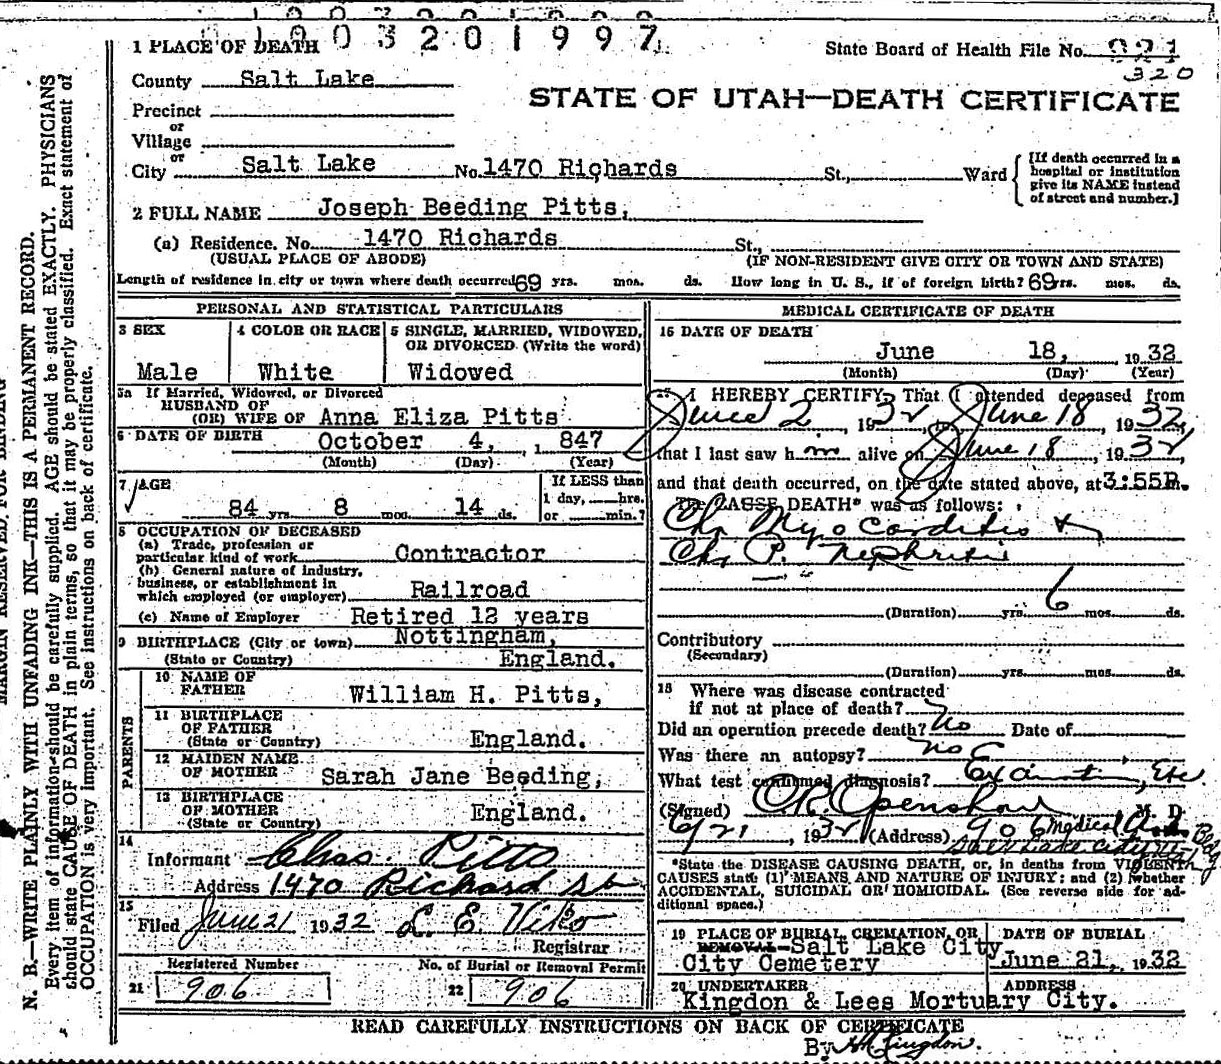 1003201997
1 PLACE OF DEATH
State Board of Health File No. 921
320
County Salt Lake
STATE OF UTAH—DEATH CERTIFICATE
Precinct
or
Village
or
City Salt Lake No. 1470 Richards St., Ward
[If death occurred in a hospital or institution give its NAME instead of street and number.]
2 FULL NAME Joseph Beeding Pitts,
(a) Residence. No. 1470 Richards St.,
(USUAL PLACE OF ABODE) (IF NON-RESIDENT GIVE CITY OR TOWN AND STATE)
Length of residence in city or town where death occurred 69 yrs. mos. ds. How long in U. S., if of foreign birth? 69 yrs. mos. ds.
PERSONAL AND STATISTICAL PARTICULARS
3 SEX
Male
4 COLOR OR RACE
White
5 SINGLE, MARRIED, WIDOWED, OR DIVORCED (Write the word)
Widowed
5a If Married, Widowed, or Divorced
HUSBAND OF
(OR) WIFE OF Anna Eliza Pitts
6 DATE OF BIRTH October 4, 1847
(Month) (Day) (Year)
7 AGE
84 yrs. 8 mos. 14 ds.
If LESS than
1 day, hrs.
or min.?
8 OCCUPATION OF DECEASED
(a) Trade, profession or
particular kind of work Contractor
(b) General nature of industry,
business, or establishment in
which employed (or employer) Railroad
(c) Name of Employer Retired 12 years
9 BIRTHPLACE (City or town) Nottingham,
(State or Country) England.
PARENTS
10 NAME OF
FATHER William H. Pitts,
11 BIRTHPLACE
OF FATHER
(State or Country) England.
12 MAIDEN NAME
OF MOTHER Sarah Jane Beeding,
13 BIRTHPLACE
OF MOTHER
(State or Country) England.
14
Informant Chas. Pitts
Address 1470 Richard St
15
Filed June 21 1932 L. E. Viko
Registrar
Registered Number
21 906
No. of Burial or Removal Permit
22 906
MEDICAL CERTIFICATE OF DEATH
16 DATE OF DEATH
June 18, 1932
(Month) (Day) (Year)
17 I HEREBY CERTIFY, That I attended deceased from
June 2 1932, to June 18, 1932,
that I last saw h im alive on June 18, 1932,
and that death occurred, on the date stated above, at 3:55P.m.
The CAUSE DEATH* was as follows:
Ch. Myocarditis &
Ch. P. Nephritis
(Duration) yrs. 6 mos. ds.
Contributory
(Secondary)
(Duration) yrs. mos. ds.
18 Where was disease contracted
if not at place of death?
Did an operation precede death? No Date of
Was there an autopsy? no
What test confirmed diagnosis? Examination, Etc
(Signed) C. R. Openshaw, M. D.
6/21, 1932 (Address) 906 Medical Arts Bldg
Salt Lake City Utah
*State the DISEASE CAUSING DEATH, or, in deaths from VIOLENT
CAUSES state (1) MEANS AND NATURE OF INJURY; and (2) whether
ACCIDENTAL, SUICIDAL OR HOMICIDAL. (See reverse side for ad-
ditional space.)
19 PLACE OF BURIAL, CREMATION, OR
REMOVAL Salt Lake City
City Cemetery
DATE OF BURIAL
June 21, 1932
20 UNDERTAKER ADDRESS
Kingdon & Lees Mortuary City.
READ CAREFULLY INSTRUCTIONS ON BACK OF CERTIFICATE
By Kingdon.
MARGIN RESERVED FOR BINDING
N. B.—WRITE PLAINLY WITH UNFADING INK—THIS IS A PERMANENT RECORD.
Every item of information should be carefully supplied. AGE should be stated EXACTLY. PHYSICIANS
should state CAUSE OF DEATH in plain terms, so that it may be properly classified. Exact statement of
OCCUPATION is very important. See instructions on back of certificate.